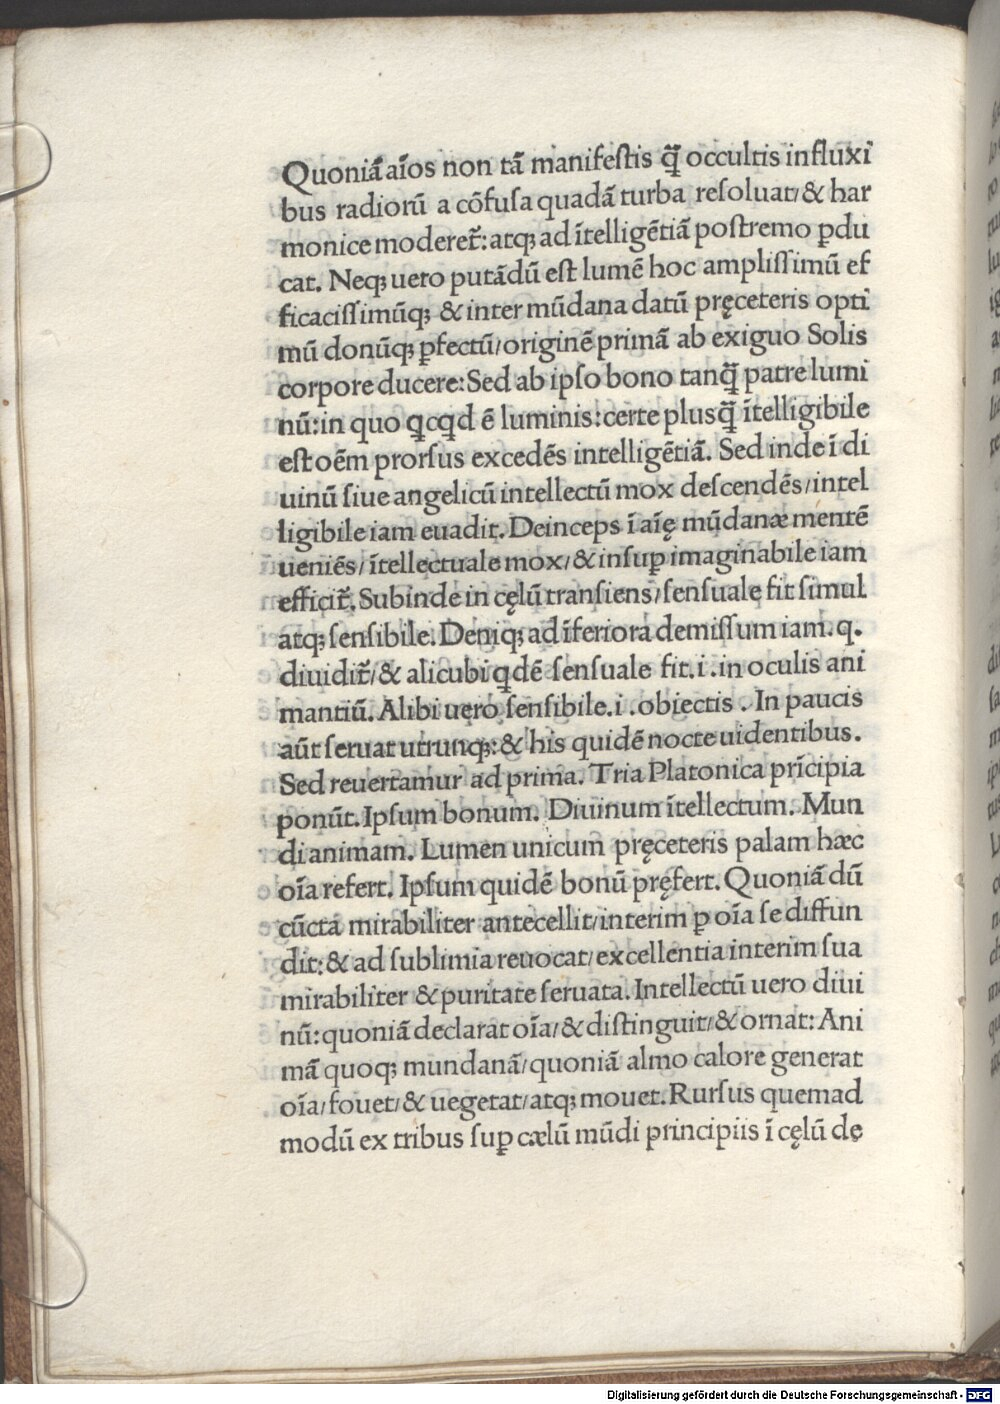 Quoniā aīos non tā manifeſtis q̄̃ occultis influxi
bus radiorū a cōfuſa quadā turba reſoluat/& har
monice moderet᷑: atq; ad ītelligētiā poſtremo ꝑdu
cat. Neq; uero putādū eſt lumē hoc ampliſſimū ef
ficaciſſimūq; & inter mūdana datū pręceteris opti
mū donūq; ꝑfectū/originē primā ab exiguo Solis
corpore ducere: Sed ab ipſo bono tanq̄̃ patre lumi
nū: in quo qcqd ē luminis: certe plusq̄̃ ītelligibile
eſt oēm prorſus excedēs intelligētiā. Sed inde ī di
uinū ſiue angelicū intellectū mox deſcendēs/intel
ligibile iam euadit. Deinceps ī aīę mūdanæ mentē
ueniēs/ītellectuale mox/& inſuꝑ imaginabile iam
efficit᷑. Subinde in cęlū tranſiens/ſenſuale fit ſimul
atq; ſenſibile. Deniq; ad īferiora demiſſum iam.q.
diuidit᷑/& alicubi qdē ſenſuale fit.i.in oculis ani
mantiū. Alibi uero ſenſibile.i.obiectis. In paucis
aūt ſeruat utrunq;: & his quidē nocte uidentibus.
Sed reuertamur ad prima. Tria Platonica prīcipia
ponūt. Ipſum bonum. Diuinum ītellectum. Mun
di animam. Lumen unicum pręceteris palam hæc
oīa refert. Ipſum quidē bonū pręfert. Quoniā dū
cūcta mirabiliter antecellit/interim ꝑ oīa ſe diffun
dit: & ad ſublimia reuocat/excellentia interim ſua
mirabiliter & puritate ſeruata. Intellectū uero diui
nū: quoniā declarat oīa/& diſtinguit/& ornat: Ani
mā quoq; mundanā/quoniā almo calore generat
oīa/fouet/& uegetat/atq; mouet. Rurſus quemad
modū ex tribus ſuꝑ cælū mūdi principiis ī cęlū dę
Digitalisierung gefördert durch die Deutsche Forschungsgemeinschaft - DFG